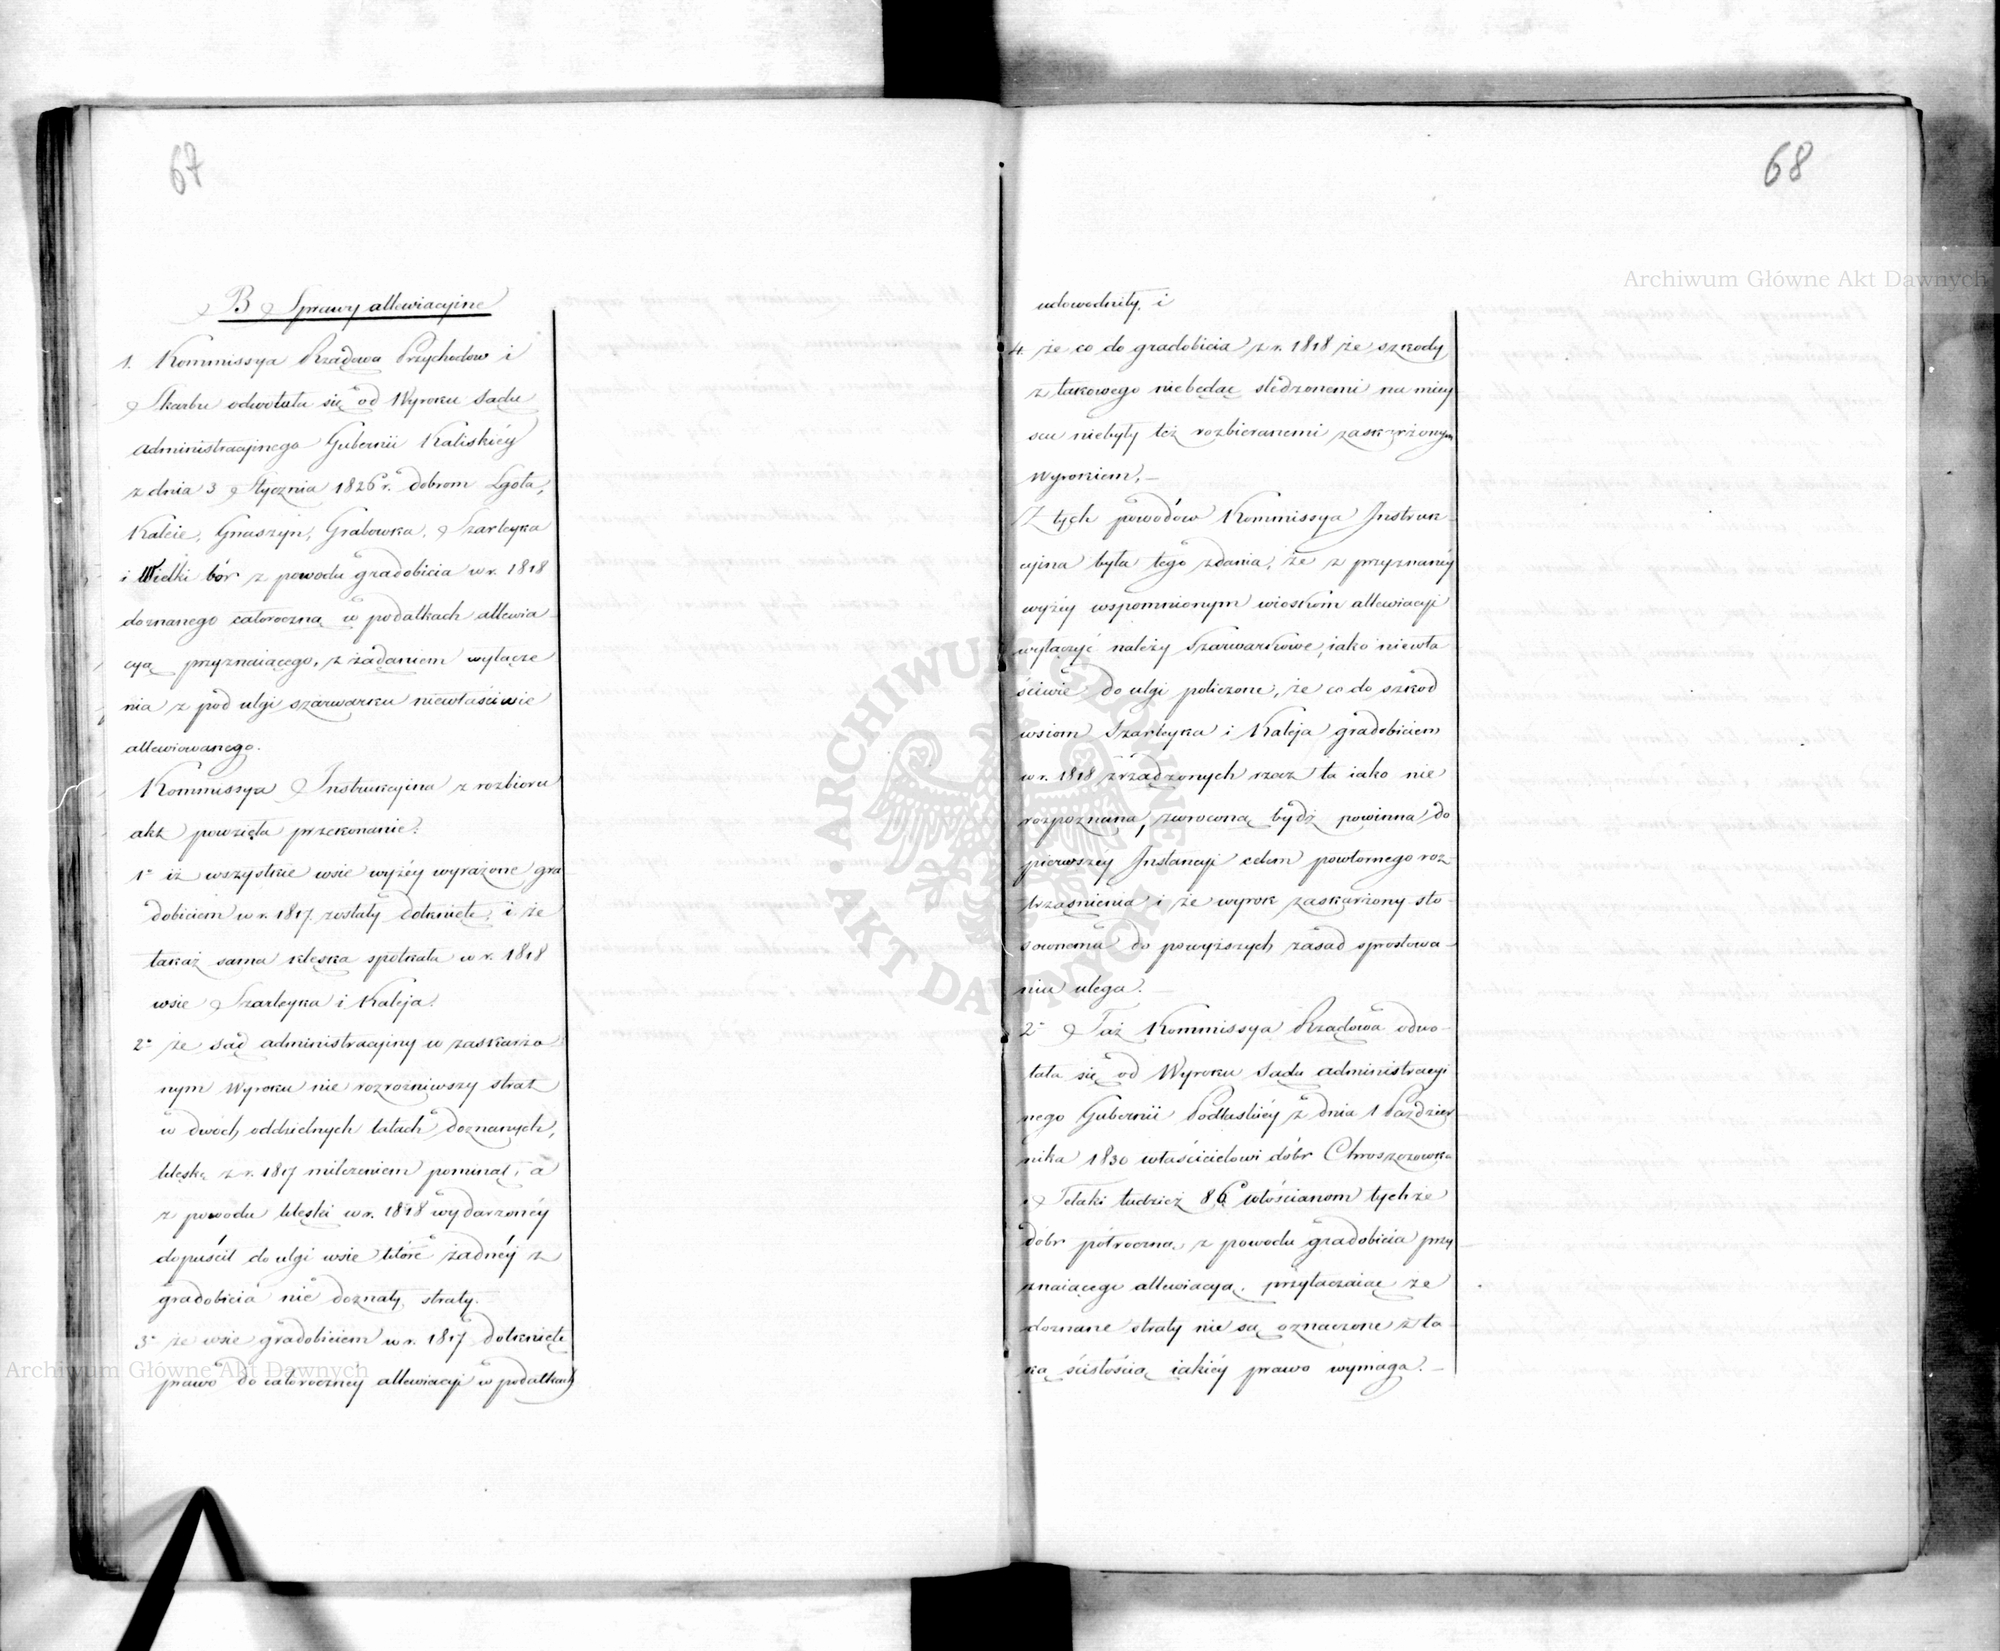 67
B Sprawy allewiacyine
1. Kommissya Rządowa Przychodow i
Skarbu odwołała się od Wyroku Sądu
administracyjnego Gubernii Kaliskiéy
z dnia 3 Stycznia 1826 r. dobrom Lgota,
Kaleie, Gnaszyn, Grabowka, Szarleyka
i Wielki bór z powodu gradobicia w r. 1818
doznanego całoroczną w podatkach allewia
cyą przyznaiącego, z żądaniem wyłącze
nia z pod ulgi szarwarku niewłaściwie
allewiowanego.
Kommissya Instrukcyina z rozbioru
akt powzięła przekonanie.
1° iż wszystkie wsie wyżéy wyrażone gra
dobiciem w r. 1817 zostały dotknięte, i że
takaż sama klęska spotkała w r. 1818
wsie Szarleyka i Kaleja.
2° że sąd administracyiny w zaskarżo
nym Wyroku nie rozrozniwszy strat
w dwoch oddzielnych latach doznanych,
klęskę z r. 1817 milczeniem pominął, a
z powodu klęski w r. 1818 wydarzonéy
dopuścił do ulgi wsie które żadnéy z
gradobicia nie doznały straty.
3° że wsie gradobiciem w r. 1817 dotknięte
prawo do całoroczney allewiacyi w podatkach
68
udowodniły, i
4. że co do gradobicia z r. 1818 że szkody
z takowego niebędąc śledzonemi na miey
scu niebyły też rozbieranemi zaskarżonym
Wyrokiem,—
Z tych powodów Kommissya Instruk-
cyina była tego zdania, że z przyznanéy
wyżéy wspomnionym wioskom allewiacyi
wyłączyć należy Szarwarkowe, iako niewła
ściwie do ulgi policzone, że co do szkód
wsiom Szarleyka i Kaleja gradobiciem
w r. 1818 zrządzonych rzecz ta iako nie
rozpoznana, zwroconą bydź powinna do
pierwszey Instancyi celem powtornego roz-
trząśnienia i że wyrok zaskarżony sto-
sownemu do powyższych zasad sprostowa-
niu ulega.—
2° Taż Kommissya Rządowa odwo-
łała się od Wyroku Sądu administracyi
nego Gubernii Podlaskiéy z dnia 1 Paździer
nika 1830 właścicielowi dóbr Chroszczowka
i Telaki tudzież 86 włościanom tychże
dóbr półroczną z powodu gradobicia przy
znaiącego allewiacyą, przytaczaiąc że
doznane straty nie są oznaczone z ta-
ką ścisłością iakiéy prawo wymaga.—
Archiwum Główne Akt Dawnych
Archiwum Główne Akt Dawnych
ARCHIWUM GŁÓWNE AKT DAWNYCH